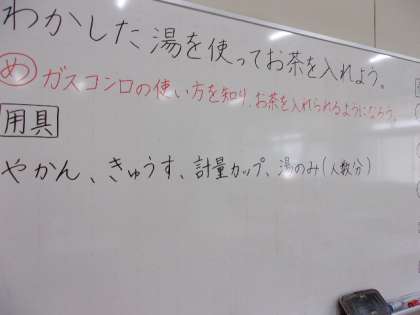 わかした湯を使ってお茶を入れよう。
め ガスコンロの使い方を知り、お茶を入れられるようになろう。
用具
やかん、きゅうす、計量カップ、湯のみ(人数分)